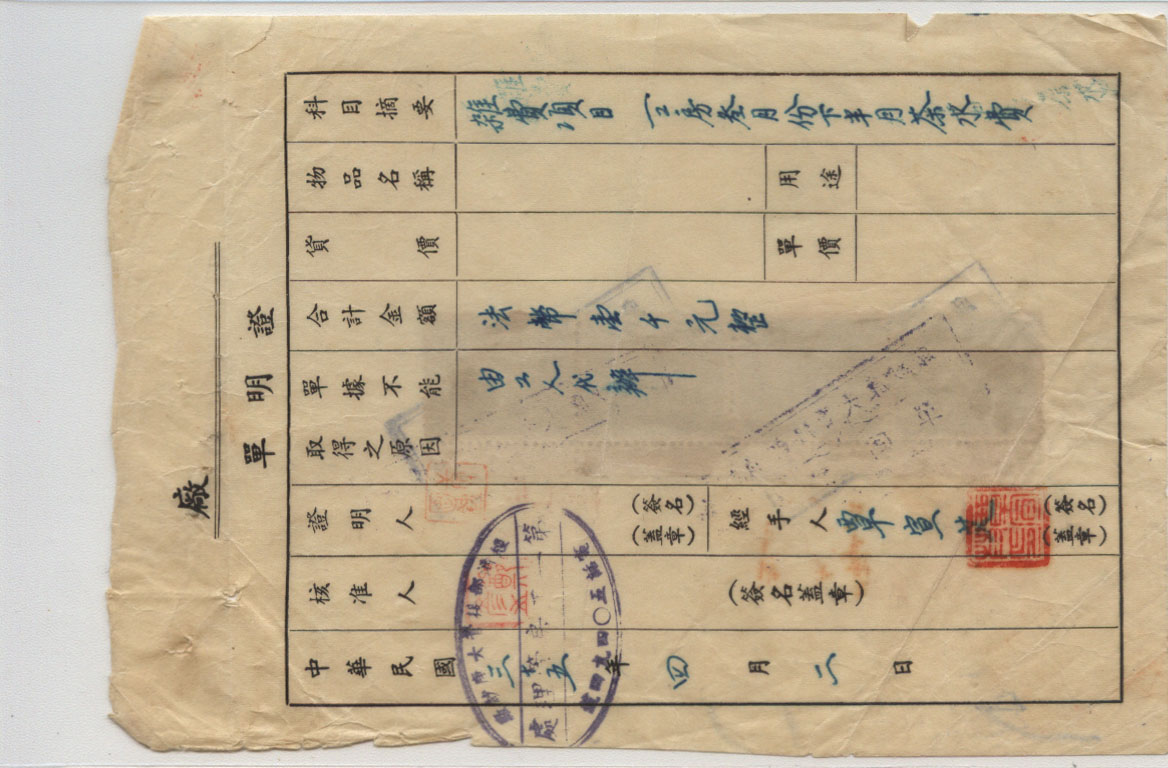 廠
單明證
科目摘要 雜費項目 工房叁月份下半月茶水費
物品名稱 用途
貨價 單價
合計金額 法幣壹千元整
單據不能取得之原因 由工人代辦
證明人 (簽名)(蓋章) 經手人 覃宣 (簽名)(蓋章)
核准人 (簽名蓋章)
中華民國三十五年四月二日
第 處理
五〇四九四號